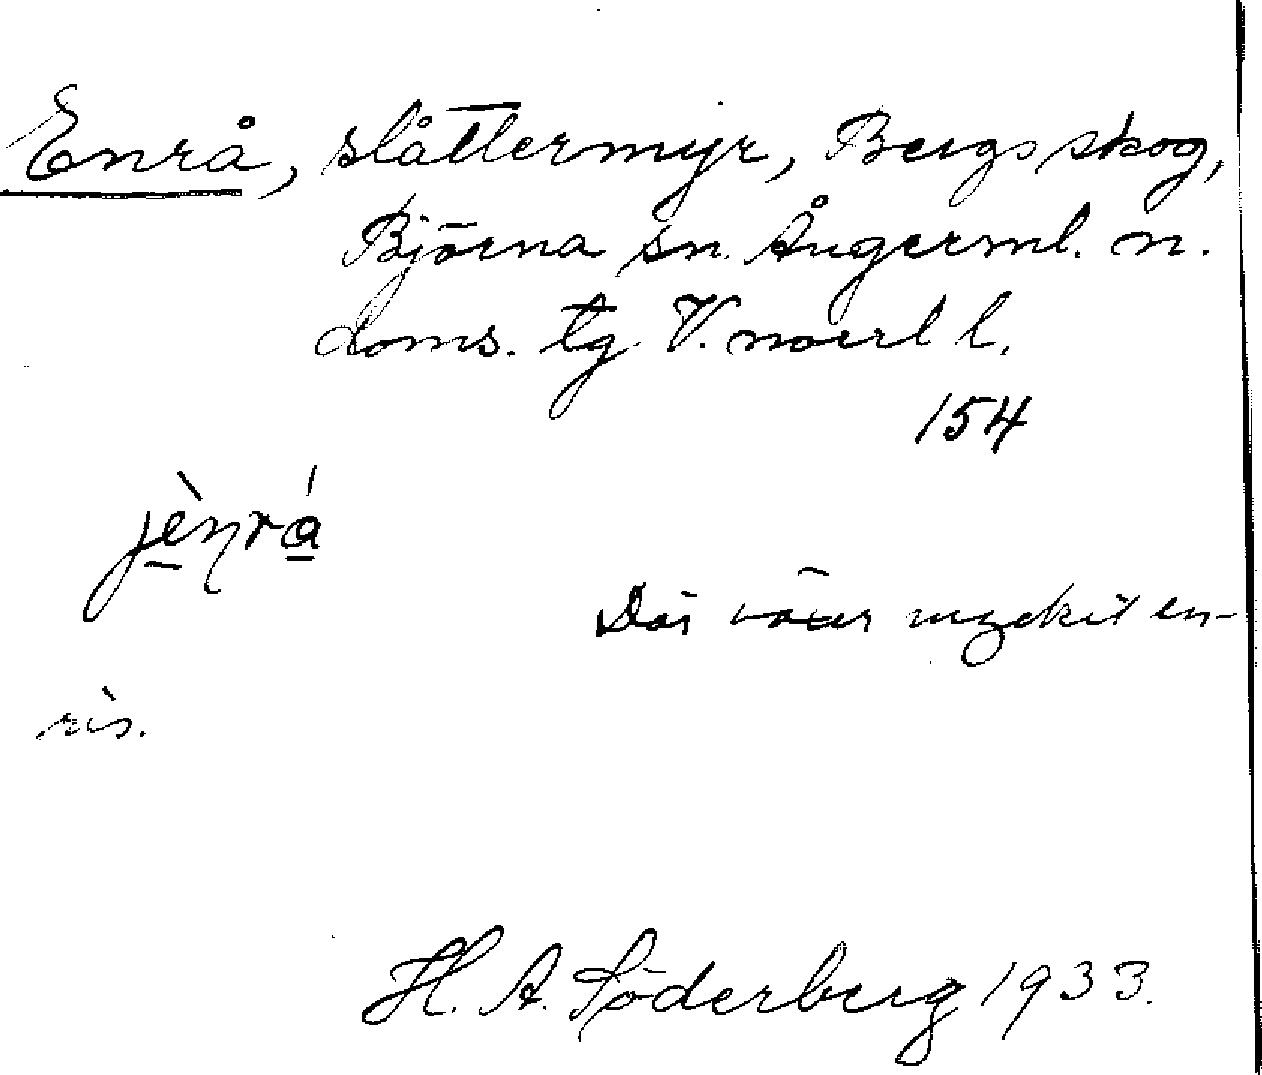 Enrå, slåttermyr, Bergsskog,
Björna sn. Ångerml. n.
doms. tg V. norrl l.
154
jènrá
Där växer mycket en-
ris.
H. A. Söderberg 1933.